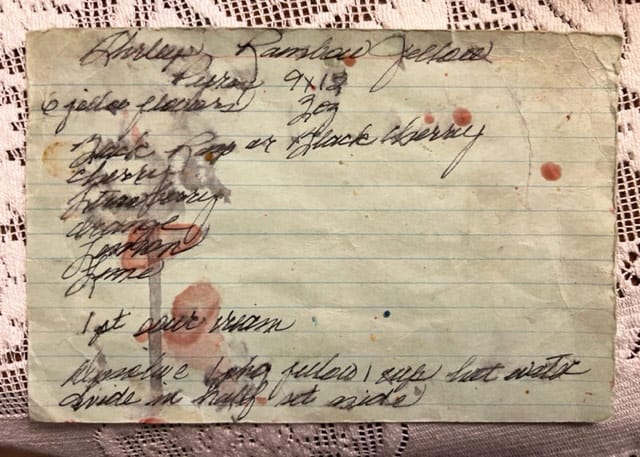 Shirleys Rainbow Jelloe
Pyrex 9x13
6 jelloe flavors 3oz
Black Rasp or Black cherry
Cherry
Strawberry
Orange
Lemon
Lime
1 pt sour cream
Dissolve 1 pkg jelloe 1 cup hot water
divide in half set aside